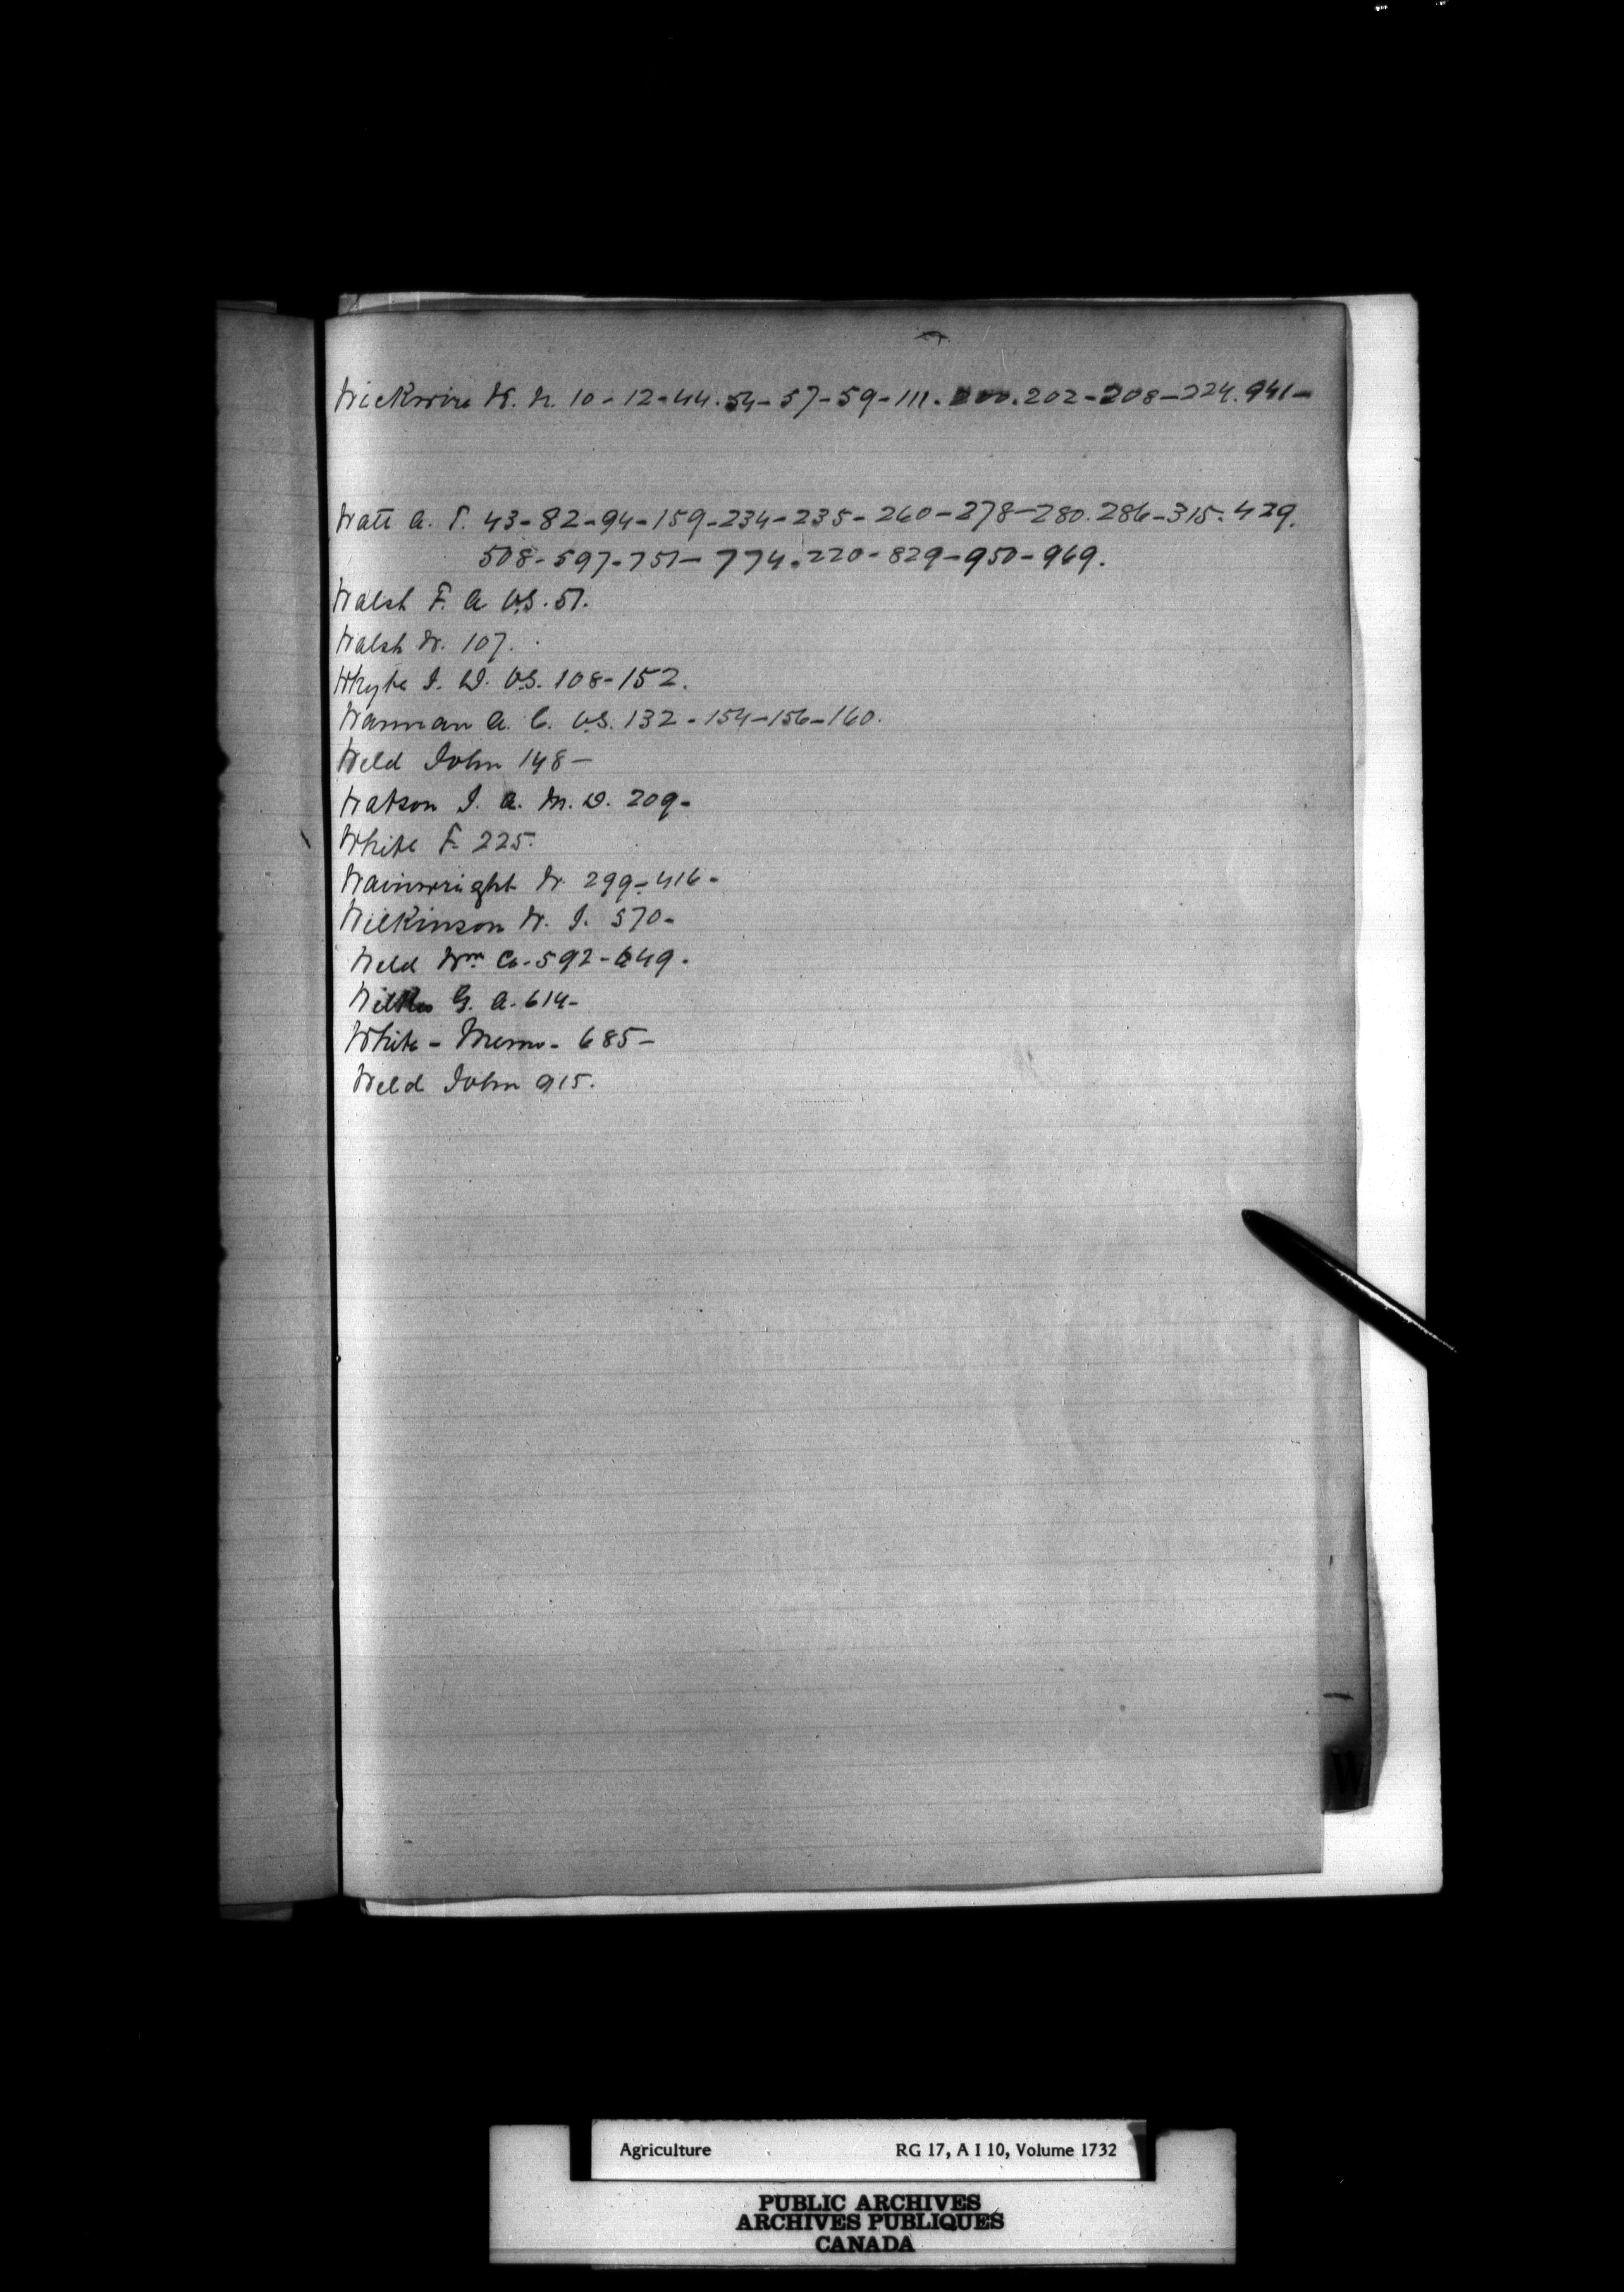 Wickwire W. N. 10-12-44.54-57-59-111.200.202-208-224.941-
Watt A. T. 43-82-94-159-234-235-260-278-280.286-315.429.
508-597-751-774.220-829-950-969.
Walsh F. A. V.S. 51.
Walsh W. 107.
Whyte J. D. V.S. 108-152.
Warman A. C. V.S. 132-154-156-160.
Weld John 148-
Watson J. A. M. D. 209-
White F. 225.
Wainwright W. 299-416-
Wilkinson W. J. 570-
Weld Wm Co-592-649.
G. A. 614-
White - Memo - 685-
Weld John 915.
W
Agriculture RG 17, A I 10, Volume 1732
PUBLIC ARCHIVES
ARCHIVES PUBLIQUES
CANADA